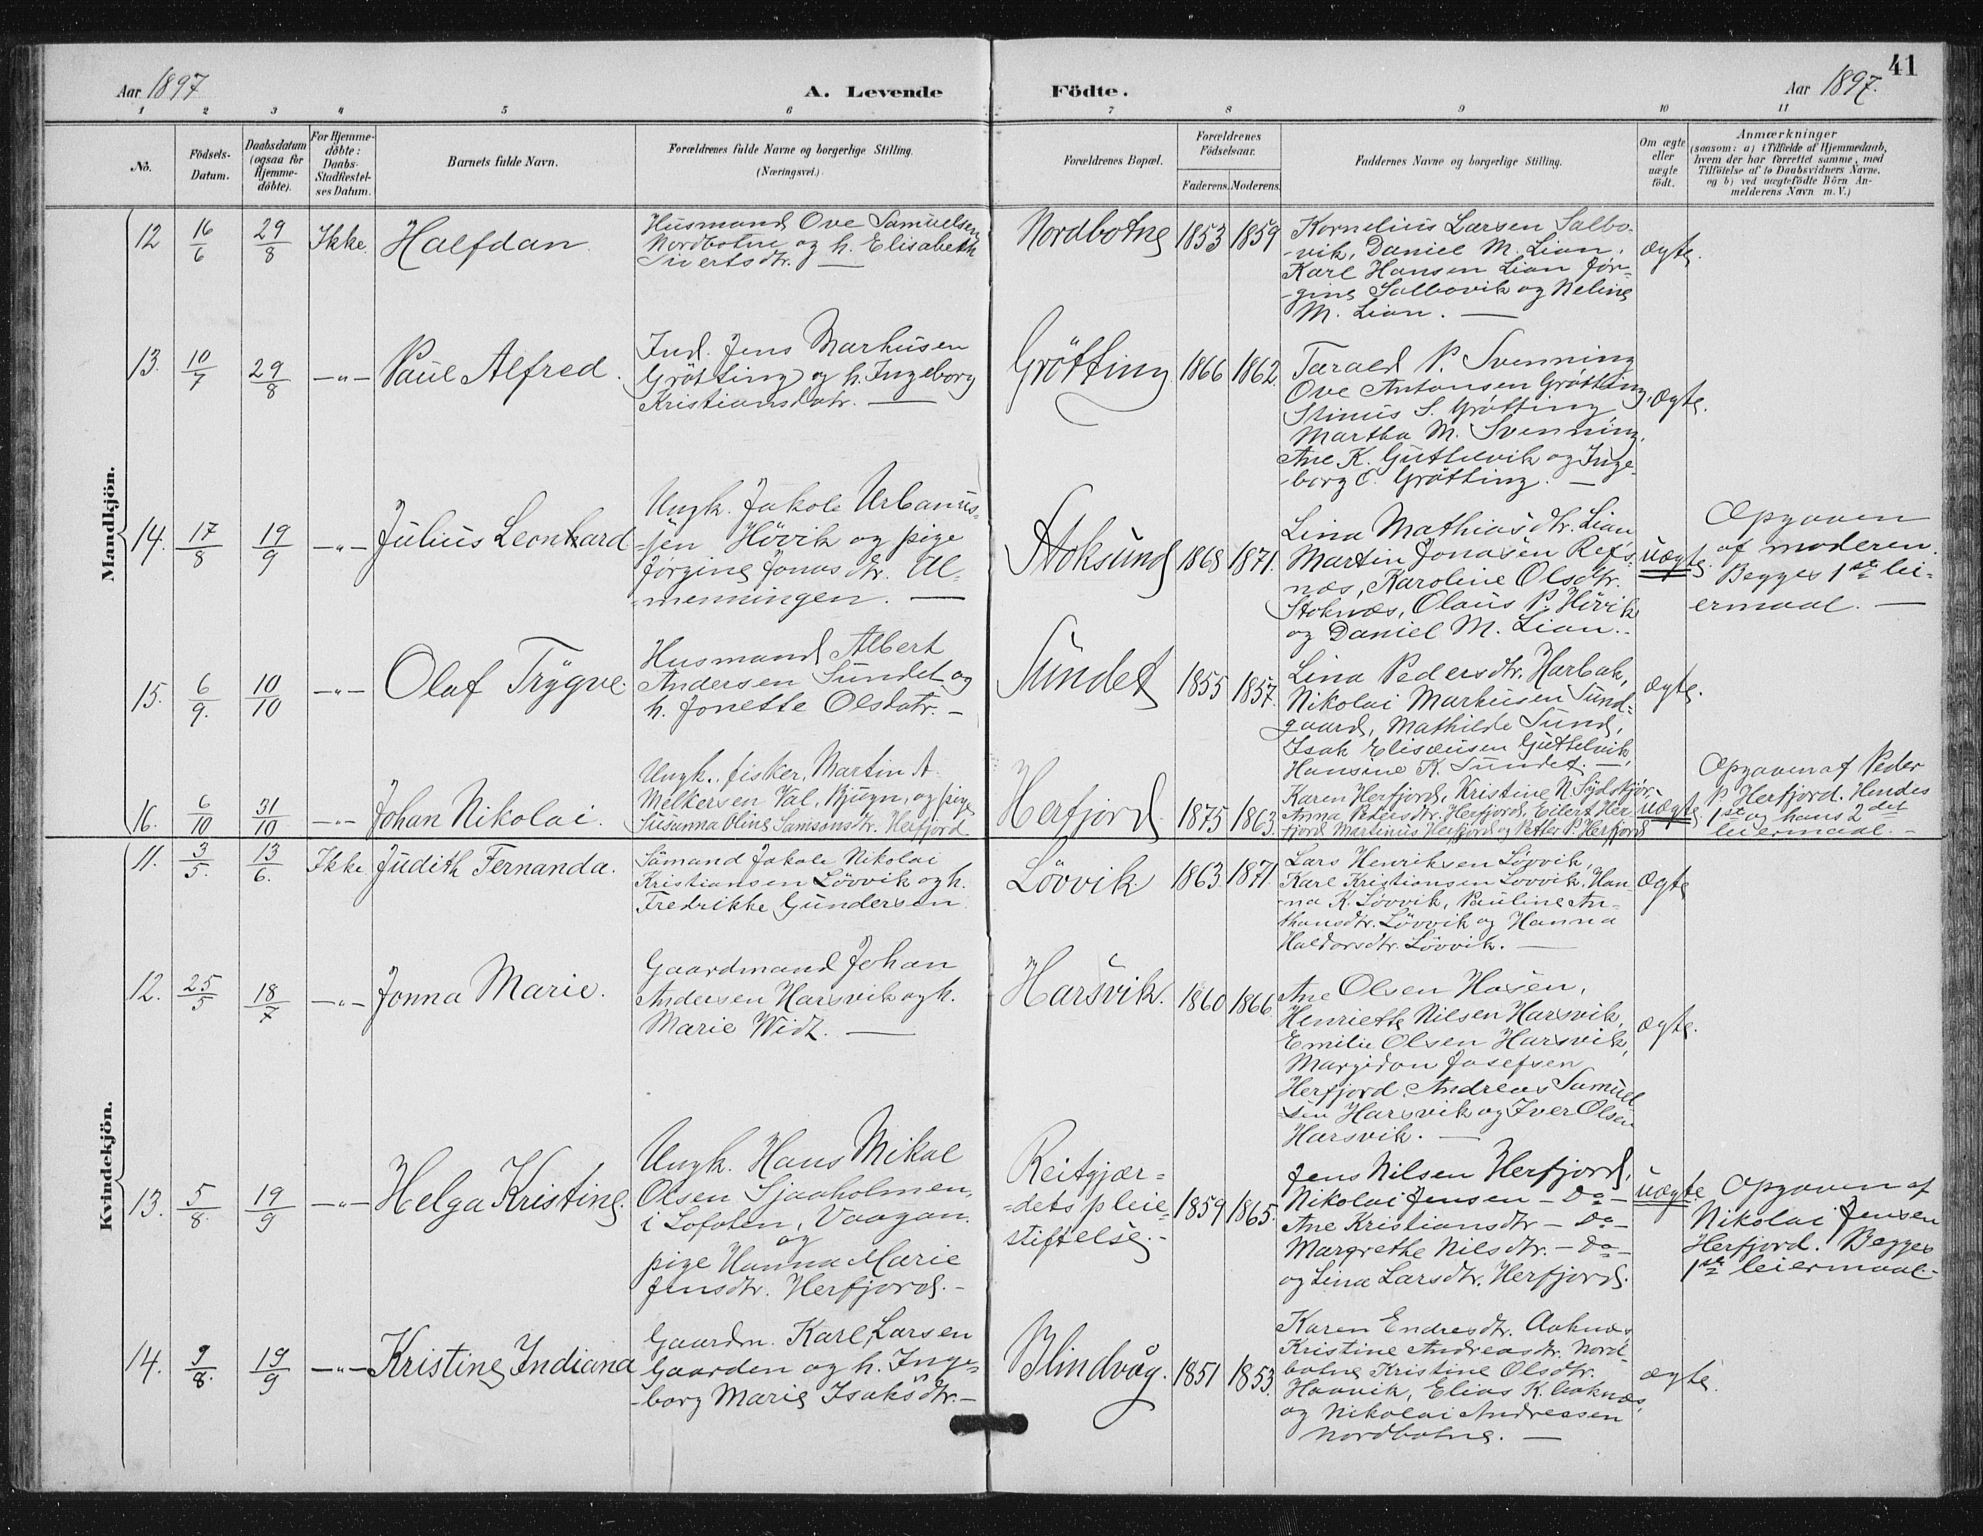 41
Aar 1897 A. Levende Födte. Aar 1897.
1 2 3 4 5 6 7 8 9 10 11
No.
Födsels-
Datum.
Daabsdatum
(ogsaa for
Hjemme-
döbte).
For Hjemme-
döbte:
Daabs-
Stadfæstel-
ses Datum.
Barnets fulde Navn.
Forældrenes fulde Navne og borgerlige Stilling.
(Næringsvei).
Forældrenes Bopæl.
Forældrenes
Födselsaar.
Faderens. Moderens.
Faddernes Navne og borgerlige Stilling.
Om ægte
eller
uægte
födt.
Anmærkninger
(saasom: a) i Tilfælde af Hjemmedaab,
hvem der har forrettet samme, med
Tilföielse af to Daabsvidners Navne,
og b) ved uægtefödte Börn An-
melderens Navn m. V.)
Mandkjön.
12 16/6 29/8 Ikke. Halfdan.
Husmand Ove Samuelsen
Nordbotne og h. Elisabeth
Sivertsdtr. —
Nordbotne 1853 1859
Kornelius Larsen Salbo-
-vik, Daniel M. Lian,
Karl Hansen Lian Jør-
-gine Salbovik og Neline
M. Lian. —
ægte.
13. 10/7 29/8 —"— Paul Alfred.
Ind. Jens Markusen
Grötting og h. Ingeborg
Kristiansdatr. —
Grötting 1866 1862.
Tarald P. Svenning
Ove Antonsen Grötting,
Stinus S. Grötting,
Martha M. Svenning,
Ane K. Guttelvik og Inge-
-borg C. Grötting. —
ægte.
14. 17/8 19/9 —"— Julius Leonhard
Ungk. Jakob Urbanus-
-sen Hövik og pige
Jörgine Jonasdtr. Al-
-menningen. —
Stoksund 1868 1871.
Lina Mathiasdtr. Lian
Martin Jonasen Refs-
næs, Karoline Olsdtr.
Stoknæs, Olaus P. Hövik
og Daniel M. Lian. -
uægte.
Opgaven
af moderen.
Begges 1ste lei-
ermaal. —
15. 6/9. 10/10 —"— Olaf Trygve.
Husmand Albert
Andersen Sundet og
h. Jonette Olsdatr. —
Sundet 1855 1857.
Lina Pedersdtr. Harbak,
Nikolai Markusen Sund-
gaard, Mathilde Sund,
Isak Elisæusen Guttelvik
Hansine K. Sundet. —
ægte.
16. 6/10 31/10 —"— Johan Nikolai.
Ungk. fisker, Martin A.
Melkersen Val, Bjugn, og pige
Susanna Oline Samsonsdtr. Herfjord
Herfjord 1875 1863.
Karen Herfjord, Kristine N. Sydskjör-
Anna Pedersdtr. Herfjord, Eilert Her-
fjord Martinus Herfjord og Petter P. Herfjord
uægte
Opgaven af Peder
P. Herfjord. Hendes
1ste og hans 2det
leiermaal. —
Kvindekjön.
11. 3/5. 13/6. Ikke Judith Fernanda.
Sömand Jakob Nikolai
Kristiansen Lövvik og h.
Fredrikke Gundersen.
Lövvik 1863. 1871.
Lars Henriksen Lövvik,
Karl Kristiansen Lövvik, Han-
-na K. Lövvik, Pauline An-
thonsdtr. Lövvik og Hanna
Haldorsdtr. Lövvik. —
ægte
12. 25/5 18/7 —"— Jonna Marie.
Gaardmand Johan
Andersen Harsvik og h.
Marie Widt. —
Harsvik. 1860 1866.
Ane Olsen Hosen,
Henriette Nilsen Harsvik,
Emilie Olsen Harsvik,
Margido Josefsen
Herfjord. Andreas Samuel-
-sen Harsvik og Iver Olsen
Harsvik. —
ægte.
13. 5/8. 19/9 —"— Helga Kristine.
Ungk. Hans Mikal
Olsen Sjaaholmen,
i Lofoten, Vaagan.
og
pige Hanna Marie
Jensdtr. Herfjord. -
Reitgjær-
-dets pleie-
stiftelse. - 1859 1865.
Jens Nilsen Herfjord,
Nikolai Jensen — Do —
Ane Kristiansdtr — Do —
Margrethe Nilsdtr. — Do —
og Lina Larsdtr. Herfjord.
uægte.
Opgaven af
Nikolai Jensen
Herfjord. Begges
1ste leiermaal. -
14. 9/8. 19/9 —"— Kristine Indiana
Gaardm. Karl Larsen
Gaarden og h. Inge-
-borg Marie Isaksdtr. —
Blindvåg. 1851 1853.
Karen Endresdtr. Aaknæs
Kristine Andreasdtr. Nord-
botne Kristine Olsdtr.
Haavik, Elias K. Aaknæs,
og Nikolai Andreasen
Nordbotne. —
ægte.